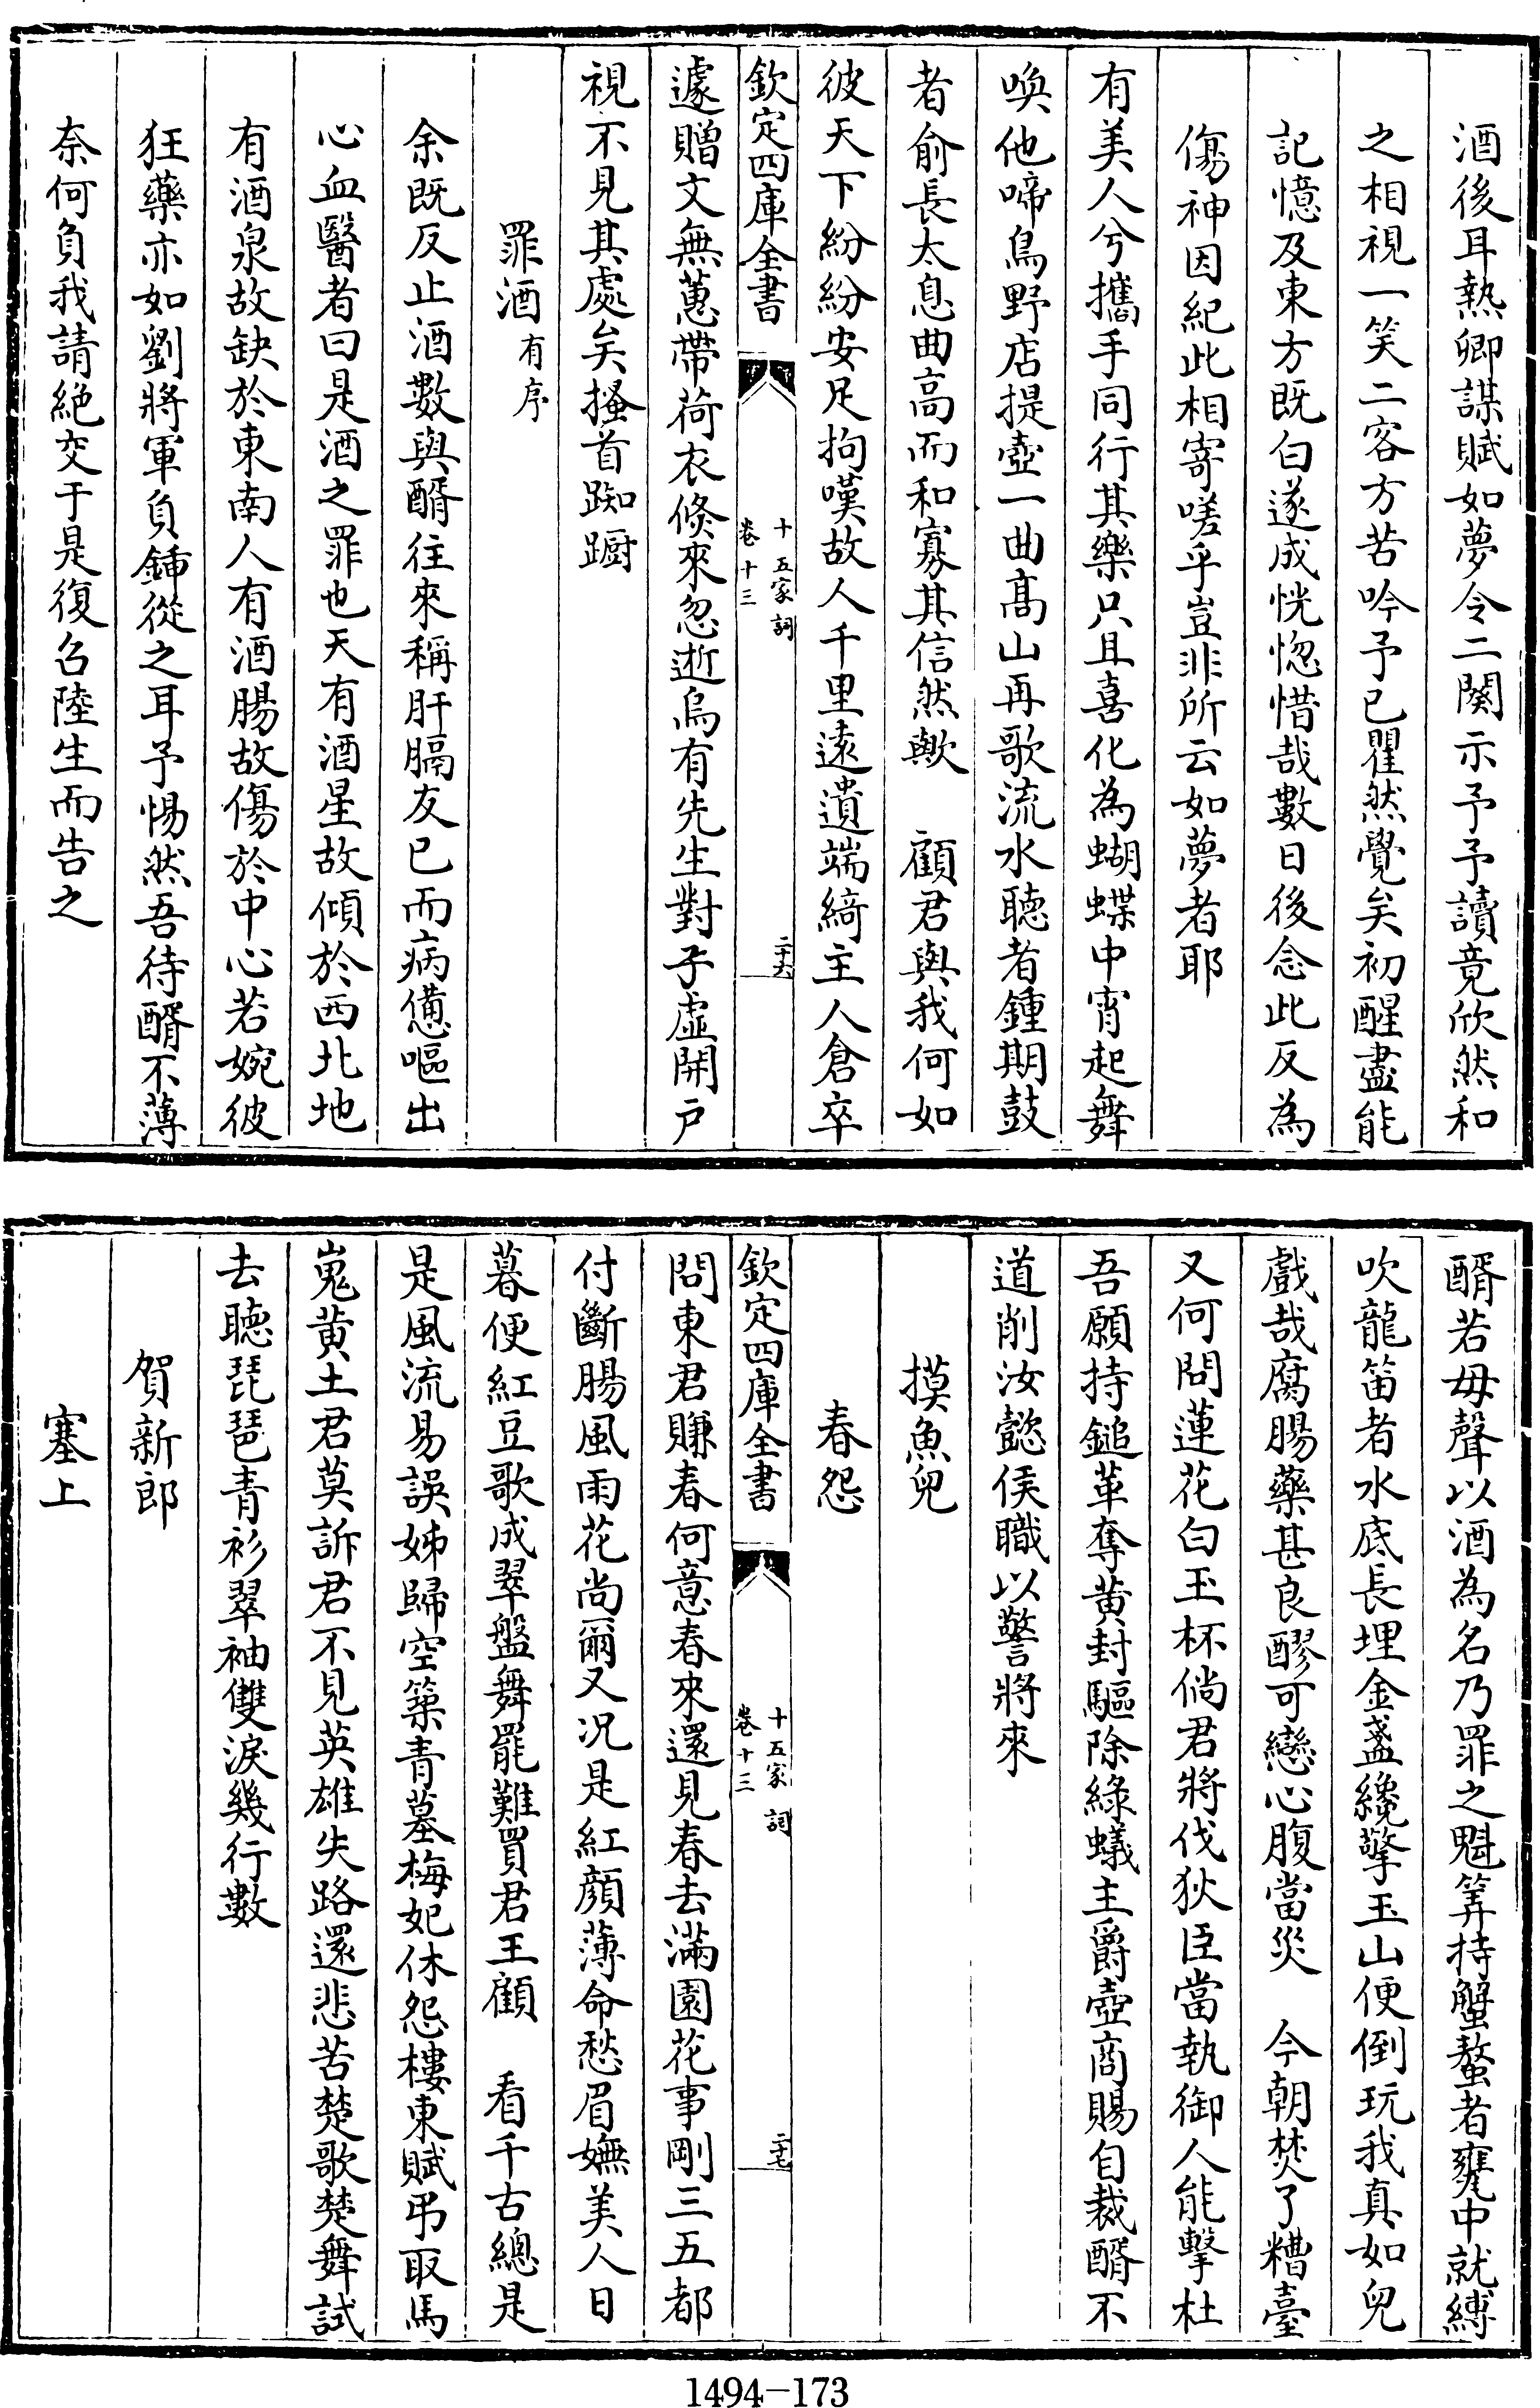 酒後耳熱卿謀賦如夢令二闋示予予讀竟欣然和
之相視一笑二客方苦吟予已瞿然覺矣初醒盡能
記憶及東方既白遂成恍惚惜哉數日後念此反為
傷神因紀此相寄嗟乎豈非所云如夢者耶
有美人兮攜手同行其樂只且喜化為蝴蝶中宵起舞
喚他啼鳥野店提壺一曲髙山再歌流水聽者鍾期鼓
者俞長太息曲高而和寡其信然歟　顧君與我何如
彼天下紛紛安足拘嘆故人千里遠遺端綺主人倉卒
欽定四庫全書
十五家詞
卷十三
二十六
遽贈文無蕙帶荷衣倏來忽逝烏有先生對子虛開户
視不見其處矣搔首踟躕
罪酒有序
余既反止酒數與醑往來稱肝膈友已而病憊嘔出
心血醫者曰是酒之罪也天有酒星故傾於西北地
有酒泉故缺於東南人有酒腸故傷於中心若婉彼
狂藥亦如劉將軍負鍤從之耳予惕然吾待醑不薄
奈何負我請絕交于是復召陸生而告之
醑若毋聲以酒為名乃罪之魁笑持蟹螯者甕中就縛
吹龍笛者水底長埋金盞纔擎玉山便倒玩我真如兒
戲哉腐腸藥甚良醪可戀心腹當災　今朝焚了糟臺
又何問蓮花白玉杯倘君將伐狄臣當執御人能擊杜
吾願持鎚革奪黄封驅除綠蟻主爵壺商賜自裁醑不
道削汝懿侯職以警將來
摸魚兒
春怨
欽定四庫全書
十五家詞
卷十三
二十七
問東君賺春何意春來還見春去滿園花事剛三五都
付斷腸風雨花尚爾又况是紅顏薄命愁眉嫵美人日
暮便紅豆歌成翠盤舞罷難買君王顧　看千古總是
是風流易誤姊歸空築青墓梅妃休怨樓東賦弔取馬
嵬黄土君莫訴君不見英雄失路還悲苦楚歌楚舞試
去聽琵琶青衫翠袖雙淚幾行數
賀新郎
塞上
1494-173